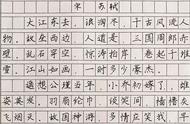 宋 苏轼
大江东去，浪淘尽，千古风流人
物，故垒西边，人道是，三国周郎赤
壁。乱石穿空，惊涛拍岸，卷起千堆
雪。江山如画，一时多少豪杰。
遥想公瑾当年，小乔初嫁了，雄
姿英发，羽扇纶巾，谈笑间，樯橹灰
飞烟灭。故国神游，多情应笑我，早